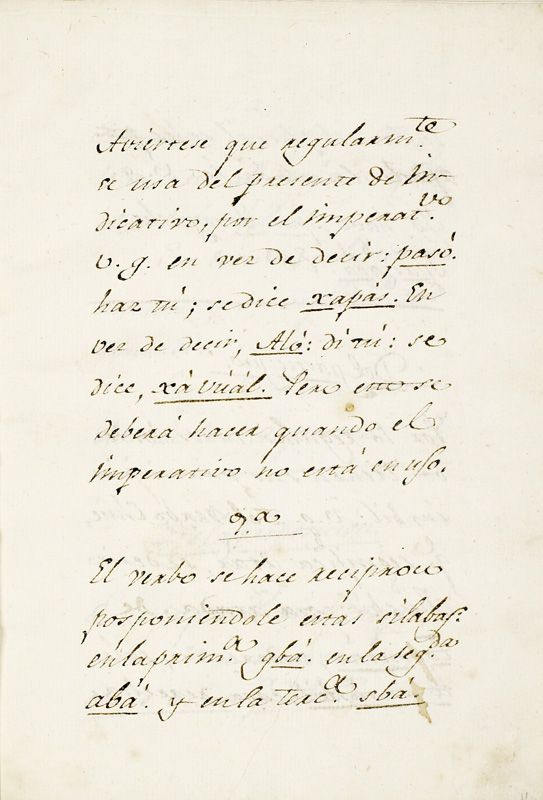 Aviertese que regularm.te
se usa del presente de In-
dicativo, por el imperat.vo
v. g. en vez de decir: pasó.
haz tú; se dice xapás. En
vez de decir, Aló: di tú: se
dice, xàvuál. Pero esto se
deberá hacer quando el
imperativo no está en uso.
7.a
El verbo se hace reciproco
posponiendole estas silabas:
en la prim.a gbá. en la seg.da
abá. y en la terc.a sbá.